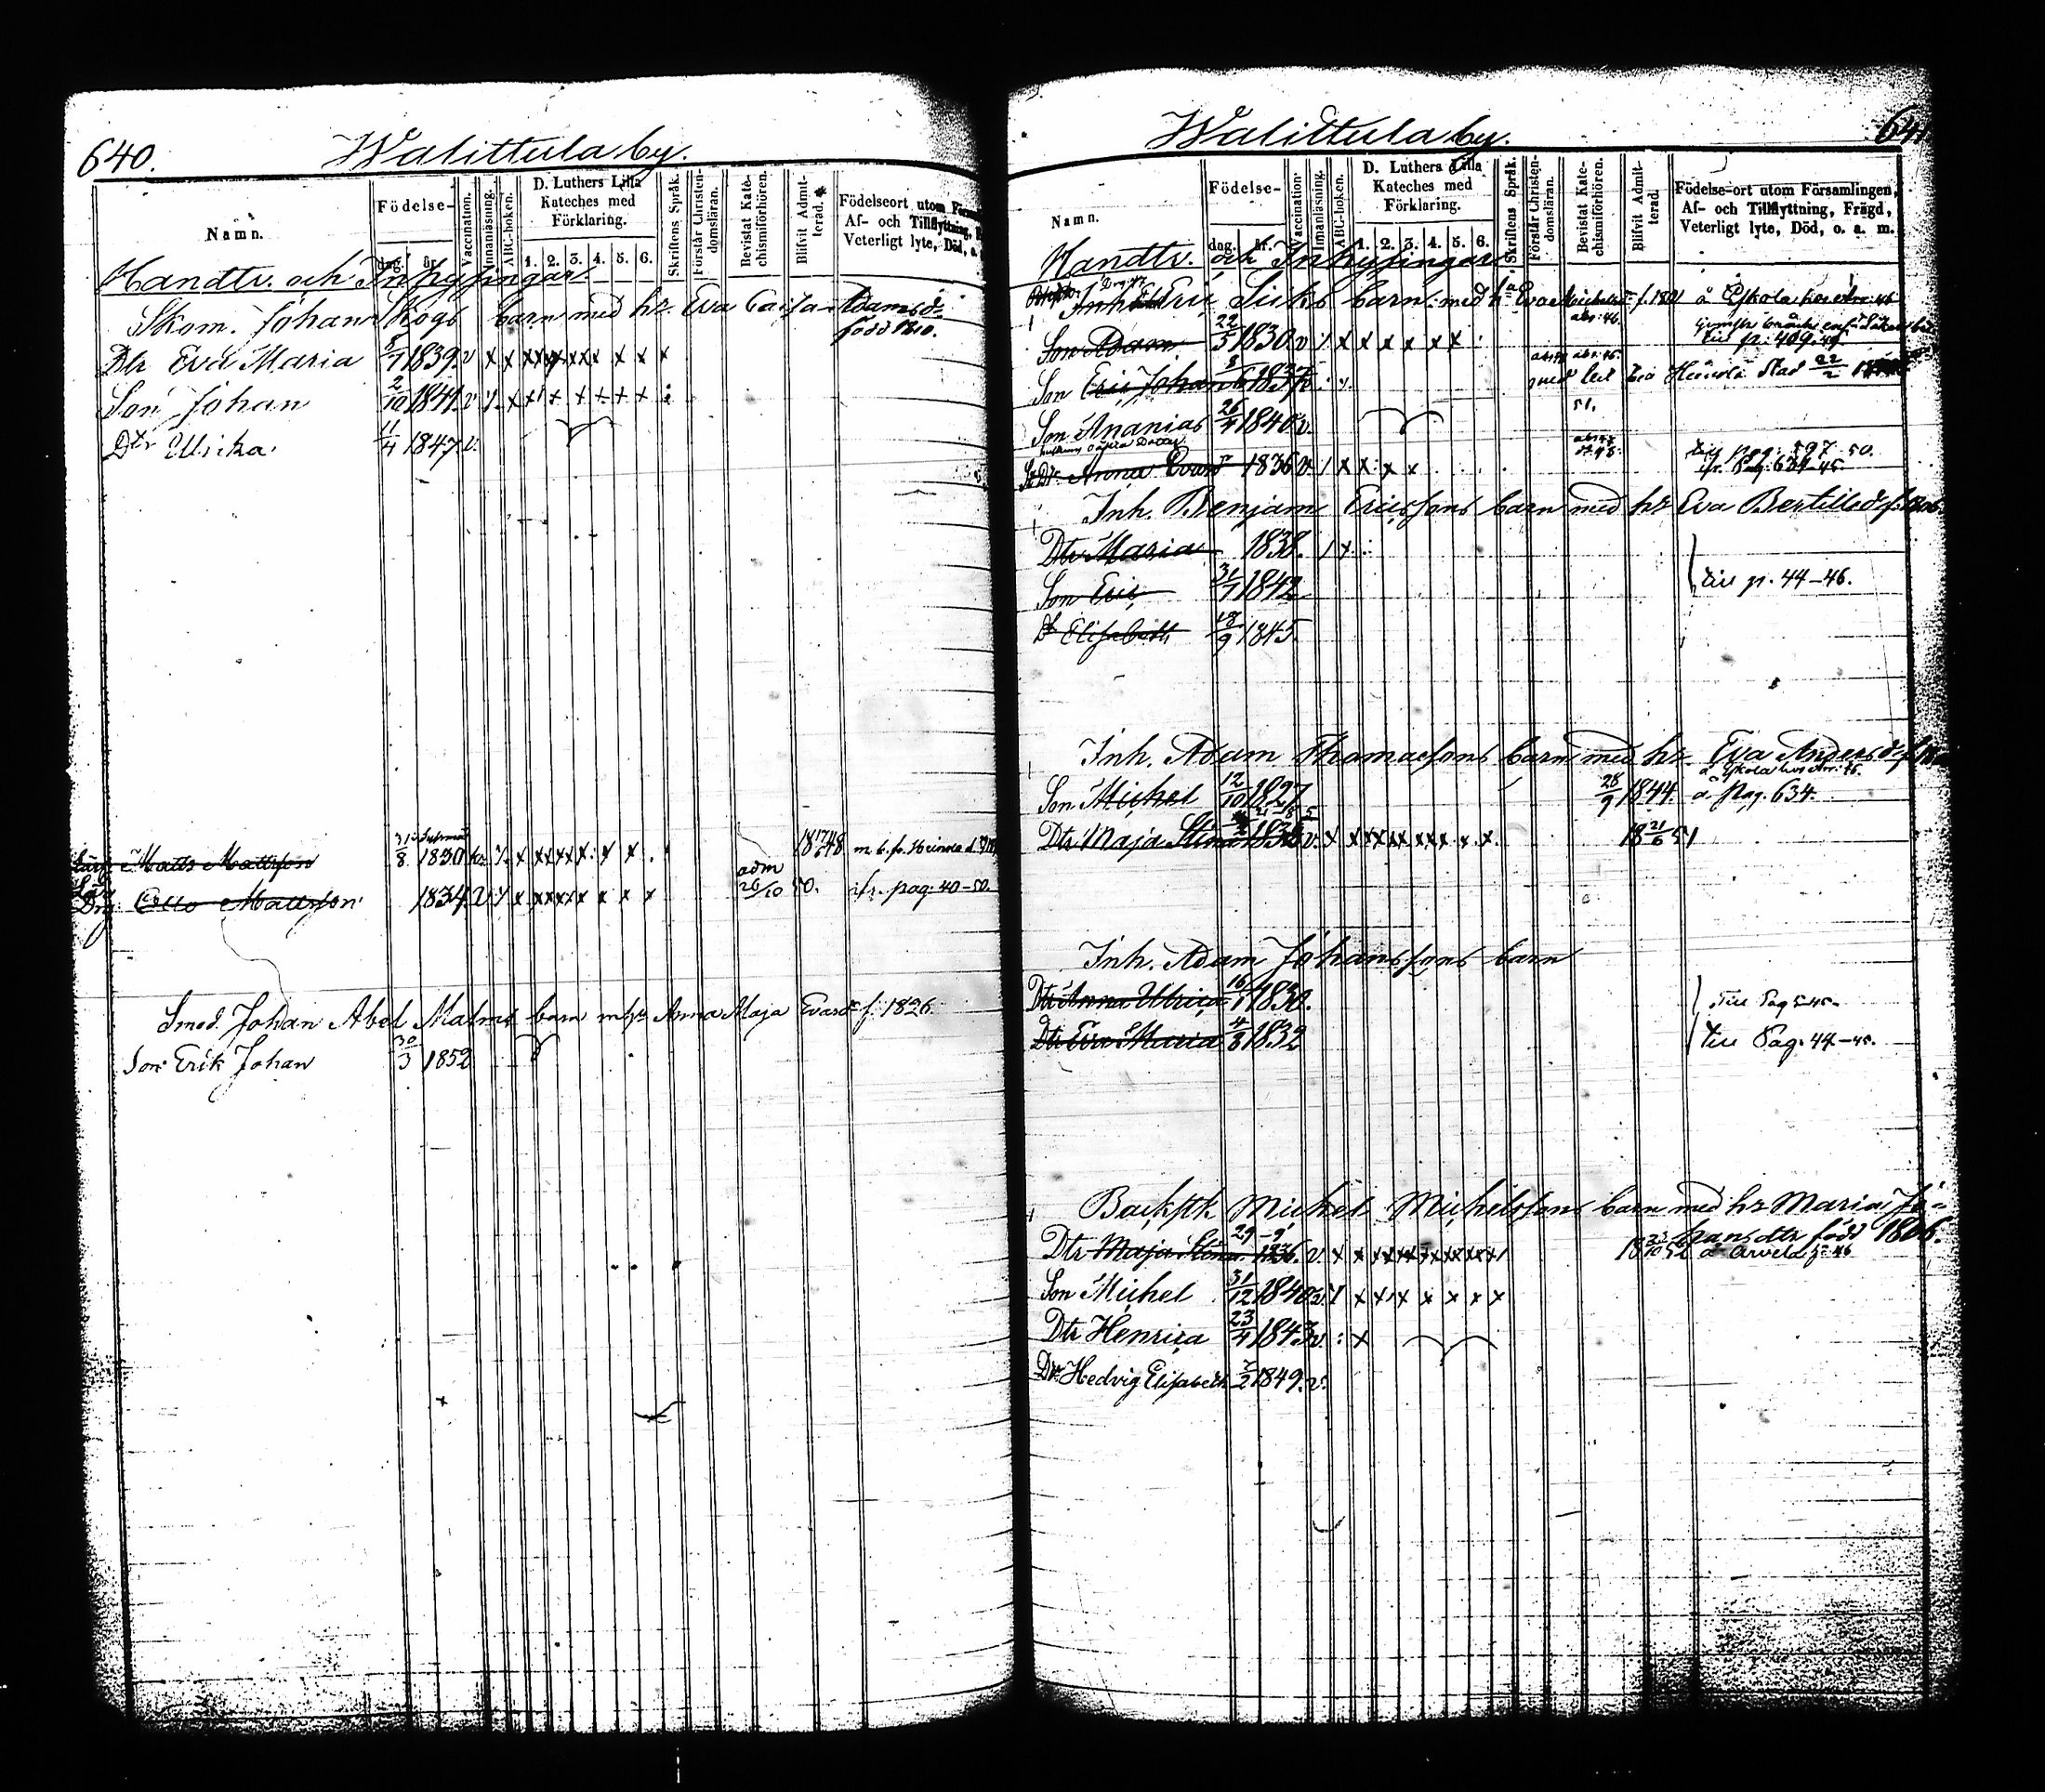 640.
Walittula by.
Namn.
Födelse-
dag. år.
Vaccination.
Innanläsning.
ABC-boken.
D. Luthers Lilla
Kateches med
Förklaring.
1. 2. 3. 4. 5. 6.
Skriftens Språk.
Förstår Christen-
domsläran.
Bevistat Kate-
chismiförhören.
Blifvit Admit-
terad.
Födelseort utom
Af- och Tillflyttning,
Veterligt lyte, Död,
Handtv. och Inhysingar
Skom. Johan Skogs barn med hr. Eva Caisa Adamsdr
född 1810.
Dtr Eva Maria 8/7 1839. v x x x x x x x x x x x
Son Johan 2/10 1841. v x x x x x x x
Dtr Ulrika. 11/4 1847. v.
Matts Mattsson 31/8 1830 18 17/6 48
Otto Mattsson 1834. v x x x x x x x x x adm 26/10 50. ifr. pag. 40-50.
Smed. Johan Abel Malms barn m hr Anna Maja Evasdr f. 1826.
Son Erik Johan 30/3 1852
Walittula by.
641
Namn.
Födelse-
dag. år.
Vaccination.
Innanläsning.
ABC-boken.
D. Luthers Lilla
Kateches med
Förklaring.
1. 2. 3. 4. 5. 6.
Skriftens Språk.
Förstår Christen-
domsläran.
Bevistat Kate-
chismiförhören.
Blifvit Admit-
terad
Födelse-ort utom Församlingen,
Af- och Tillflyttning, Frägd,
Veterligt lyte, Död, o. a. m.
Handtv. och Inhysingar
Inh. Eric barn med f. 1801 å Eskola
Son Adam 22/5 1830. v x x x x x x p. 409
Son Eric Johan 8/6 1837 v med Heinola stad 22/2
Son Ananias 26/4 1840. v. 51.
Anna Evasdr 1836 v. x x x x pag. 597-50.
ifr. Pag. 634-45
Inh. Benjam Ericssons barn med hr Eva Bertilsdr f. 1806
Dtr Maria 1838.
Son Eric 31/7 1842 till p. 44-46.
Dr Elisabeth 18/9 1845
Inh. Adam Thomassons barn med hr Eva Andersdr f.
Son Michel 12/10 1827 28/9 1844. å Pag. 634.
Dtr Maja Stina v. x x x x x x x x x. 18 21/6 51
Inh. Adam Johanssons barn
Dtr Anna Ulrica 16/1 1830. Till Pag
Dtr Eva Maria 4/8 1832 till Pag. 44-45.
Backstk Michel Michelssons barn med hr Maria Jo-
hansdtr född 1806.
Dtr Maja Stina 29-9 1836. v. x x x x x x x x x x å Arvela
Son Michel 31/12 1840 v. x x x x x x x
Dtr Henrica 23/4 1843 v. : x
Dr Hedvig Elisabeth 2/2 1849. v.